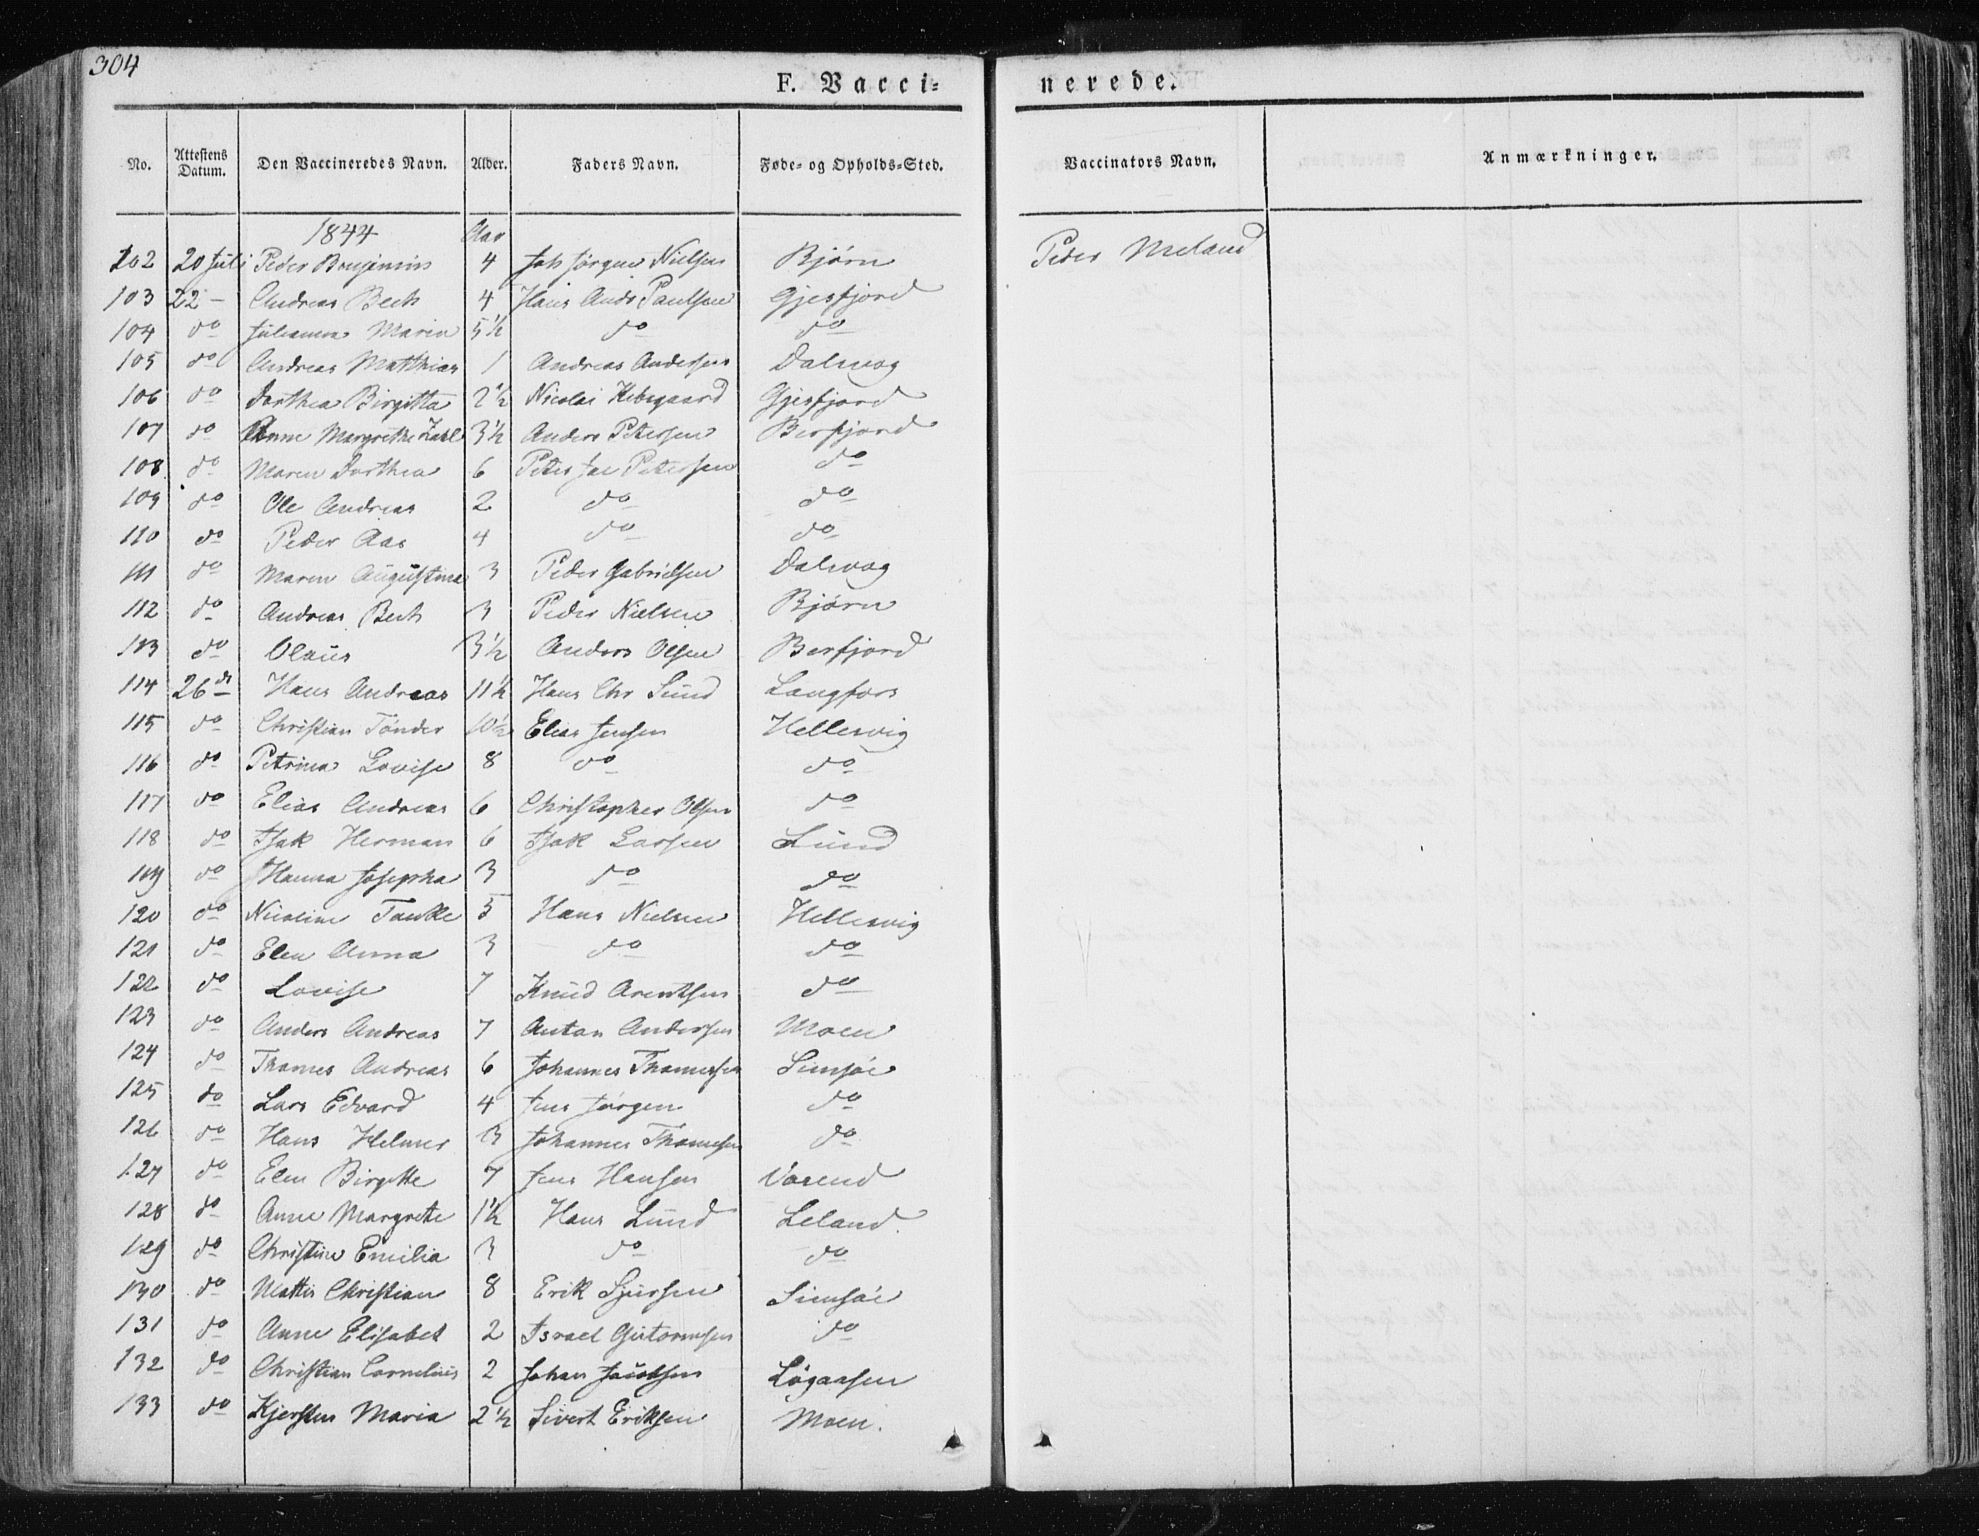 304
F. Vacci=
nerede.
No. Attestens Datum. Den Vaccineredes Navn. Alder. Faders Navn. Føde- og Opholds-Sted. Vaccinators Navn. Anmærkninger.
1844 Aar
102 20 Juli Peder 4 Joh Jørgen Nielsen Bjørn Peder Meland
103 22 – Andreas Bech 4 Hans Ands Paulsen Gjesfjord
104 do Julianna Maria 5½ do do
105 do Andreas Matthias 1 Andreas Andersen Dalsvog
106 do Dorthea Birgitta 2½ Nicolai Gjesfjord
107 do Anne Margrethe Zahl 3½ Anders Petersen Berfjord
108 do Maren Dorthea 6 Peter Jac Petersen do
109 do Ole Andreas 2 do do
110 do Peder Aas 4 do do
111 do Maren Augustina 3 Peder Gabrielsen Dalsvog
112 do Andreas Bech 3 Peder Nielsen Bjørn
113 do Olaus 3½ Anders Olsen Berfjord
114 26 d Hans Andreas 11½ Hans Chr Lund Langfors
115 do Christian Tønder 10½ Elias Jensen Hellesvig
116 do Petrina Lovise 8 do do
117 do Elias Andreas 6 Christopher Olsen do
118 do Isak Herman 6 Isak Larsen Lund
119 do Hanna Josepha 3 do do
120 do Nicoline Tanke 5 Hans Nielsen Hellesvig
121 do Elen Anna 3 do do
122 do Lovise 7 Knud Arentsen do
123 do Anders Andreas 7 Anton Andersen Moen
124 do Thomes Andreas 6 Johannes Thomessen Simsøe
125 do Lars Edvard 4 Jens Jørgen do
126 do Hans Helmer 3 Johannes Thomesen do
127 do Elen Birgitte 7 Jens Hansen Vasend
128 do Anne Margrete 1½ Hans Lund Leland
129 do Christine Emilia 3 do do
130 do Mattis Christian 8 Erik Sjursen Simsøe
131 do Anne Elisabet 2 Israel Guttormsen do
132 do Christian Cornelius 2 Johan Jacobsen Løgaasen
133 do Kjersten Maria 2½ Sivert Eriksen Moen.